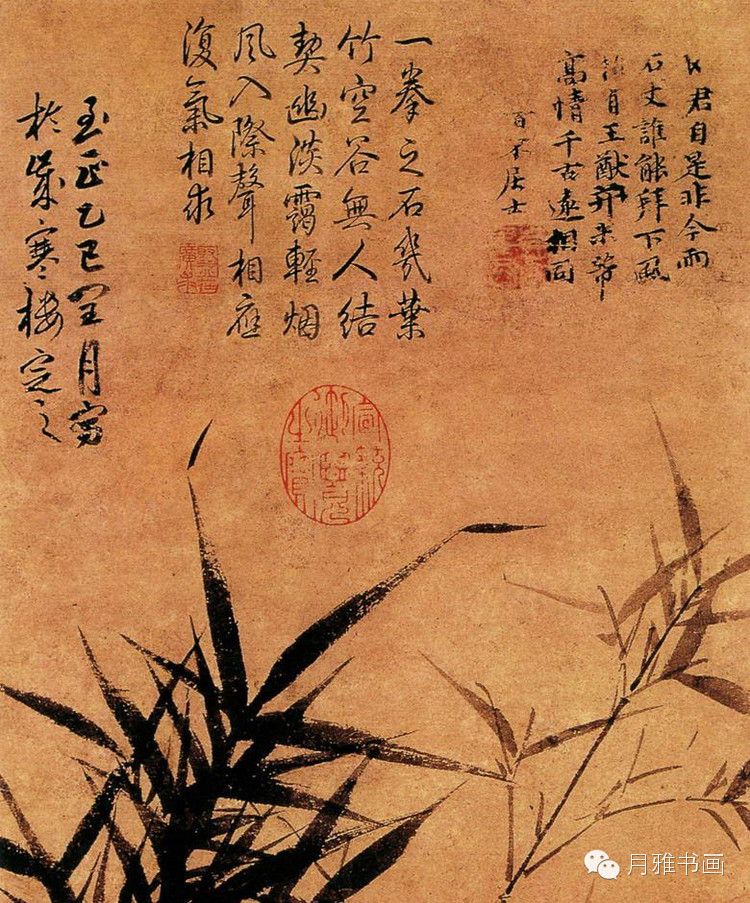 君自是非今雨
石丈誰能拜下風
有王猷并米芾
高情千古遠相同
居士
一拳之石幾葉
竹空谷無人結
契幽淡靄輕烟
風入際聲相應
復氣相求
至正乙巳月寫
於歲寒樓定之
宣統御覽之寶
月雅书画